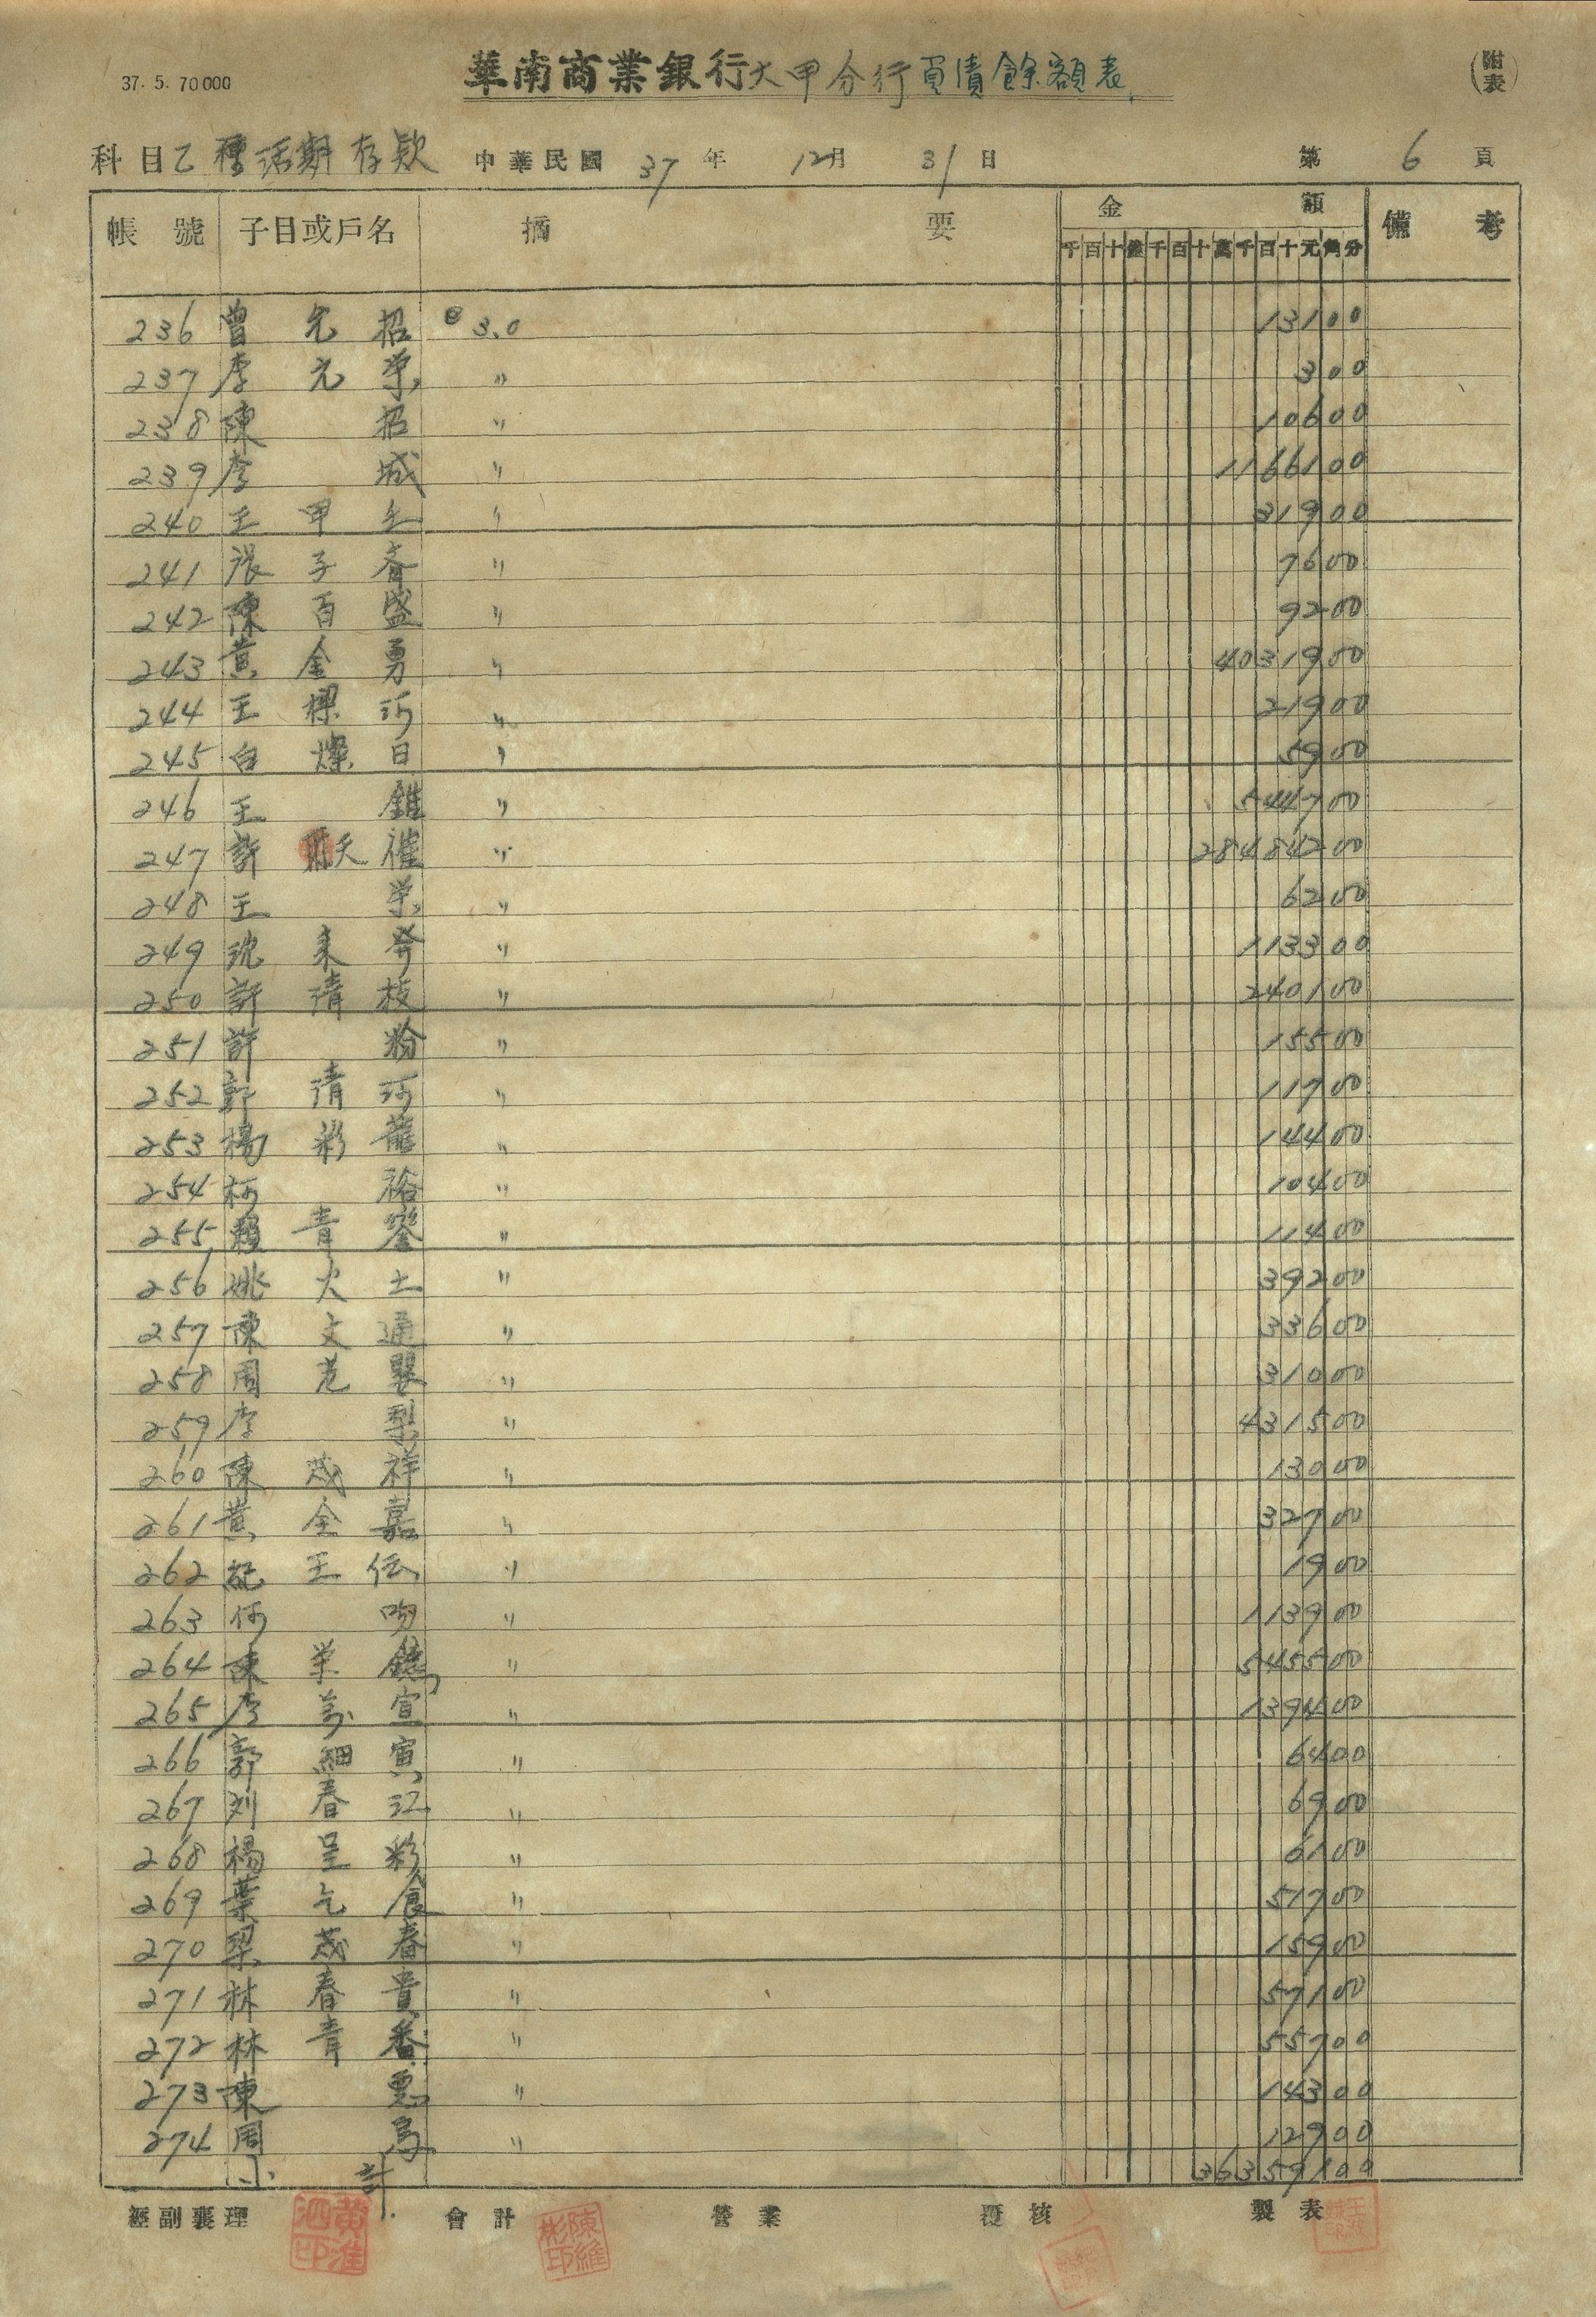 37. 5. 70000
華南商業銀行大甲分行負債餘額表
(附表)
科目乙種活期存款 中華民國37年12月31日 第6頁
帳號 子目或戶名 摘要 金額 備考
千百十億千百十萬千百十元角分
236 曾允招 @3.0 131 00
237 李元栄 〃 3 00
238 陳招 〃 106 00
239 李城 〃 11661 00
240 王甲 〃 319 00
241 張子春 〃 76 00
242 陳百盛 〃 92 00
243 黄金勇 〃 40319 00
244 王樑河 〃 219 00
245 白燦日 〃 59 00
246 王錐 〃 5447 00
247 許天催 〃 284842 00
248 王栄 〃 62 00
249 沈来 〃 1133 00
250 許清枝 〃 2401 00
251 許粉 〃 155 00
252 許清河 〃 117 00
253 楊彩龍 〃 144 00
254 柯裕 〃 104 00
255 賴青 〃 114 00
256 姚火土 〃 392 00
257 陳文通 〃 336 00
258 周 〃 310 00
259 李梨 〃 4315 00
260 陳茂祥 〃 130 00
261 黄全嘉 〃 327 00
262 紀王伝 〃 19 00
263 何吻 〃 1139 00
264 陳栄鐃 〃 5455 00
265 李萬宣 〃 1394 00
266 郭細寅 〃 64 00
267 刘春江 〃 69 00
268 楊呈彩 〃 61 00
269 葉乞食 〃 517 00
270 梁茂春 〃 159 00
271 林春貴 〃 571 00
272 林青番 〃 557 00
273 陳 〃 143 00
274 周 〃 129 00
小計 363591 00
經副襄理 會計 營業 覆核 製表
黃淮泗印 陳維彬印